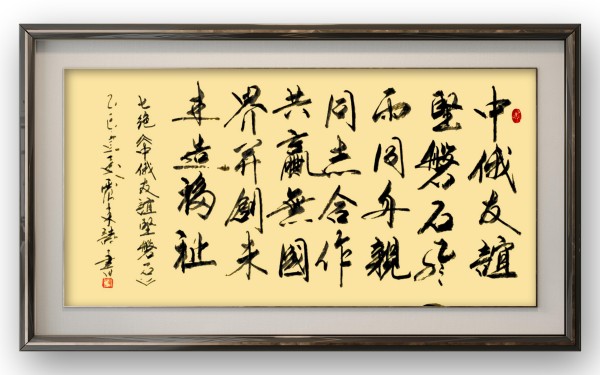 中俄友誼
堅磐石风
雨同舟親
同志合作
共贏無國
界并創未
来造福祉
七绝《中俄友誼堅磐石》
乙巳 書